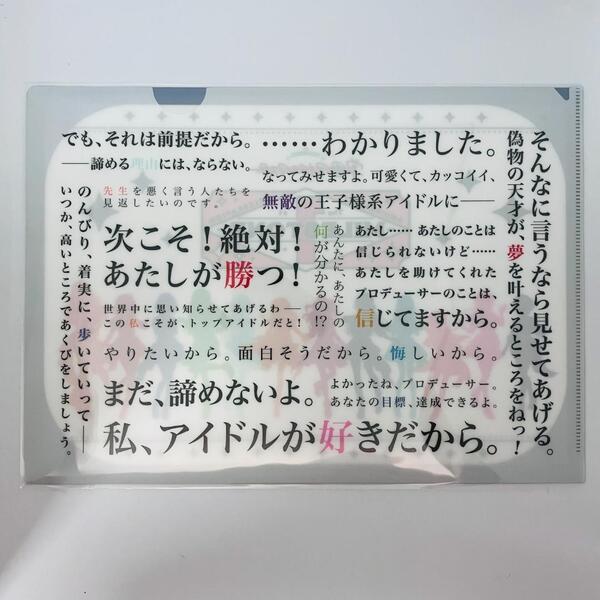 そんなに言うなら見せてあげる。
偽物の天才が、夢を叶えるところをねっ！
……わかりました。
なってみせますよ。可愛くて、カッコイイ、
無敵の王子様系アイドルに──
でも、それは前提だから。
──諦める理由には、ならない。
先生を悪く言う人たちを
見返したいのです。
のんびり、着実に、歩いていって──
いつか、高いところであくびをしましょう。
次こそ！絶対！
あたしが勝つ！
あんたに、あたしの
何が分かるの!?
あたし……あたしのことは
信じられないけど……
あたしを助けてくれた
プロデューサーのことは、
信じてますから。
世界中に思い知らせてあげるわ──
この私こそが、トップアイドルだと！
やりたいから。面白そうだから。悔しいから。
まだ、諦めないよ。
よかったね、プロデューサー。
あなたの目標、達成できるよ。
私、アイドルが好きだから。